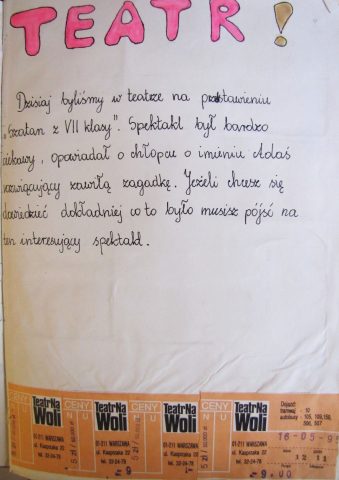 TEATR!
Dzisiaj byliśmy w teatrze na przedstawieniu
„Szatan z VII klasy". Spektakl był bardzo
ciekawy, opowiadał o chłopcu o imieniu Adaś
rozwiązujący zawiłą zagadkę. Jeżeli chcesz się
dowiedzieć dokładniej co to było musisz pójść na
ten interesujący spektakl.
CENY
TeatrNa
Woli
01-211 WARSZAWA
ul. Kasprzaka 22
tel. 32-24-78
CENY
5 zł
TeatrNa
Woli
01-211 WARSZAWA
ul. Kasprzaka 22
tel. 32-24-78
9
CENY
5 zł
TeatrNa
Woli
01-211 WARSZAWA
ul. Kasprzaka 22
tel. 32-24-78
CENY
5 zł
TeatrNa
Woli
01-211 WARSZAWA
ul. Kasprzaka 22
tel. 32-24-78
Dojazd:
tramwaj - 10
autobusy - 105, 109, 159,
506, 507
16-05-9
12 11
9.00